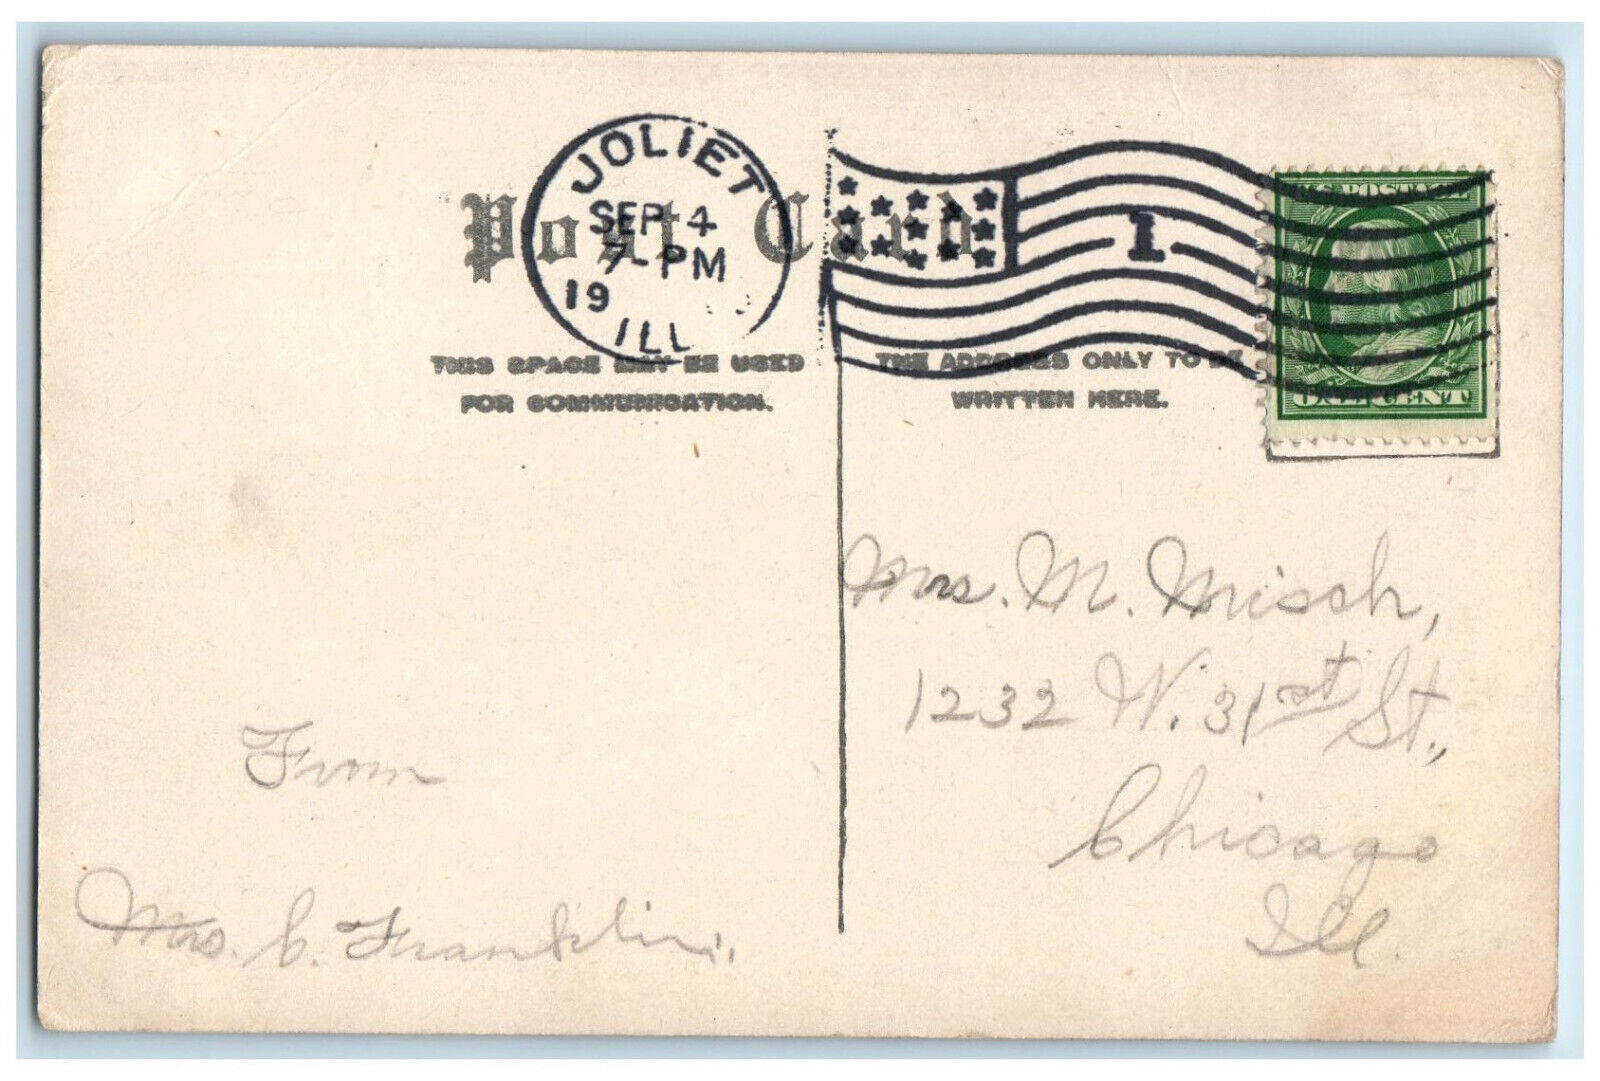 JOLIET
SEP 4
7-PM
19
ILL
1
U.S. POSTAGE
ONE CENT
Post Card
THIS SPACE MAY BE USED
FOR COMMUNICATION.
THE ADDRESS ONLY TO BE
WRITTEN HERE.
Mrs. M. Missh,
1232 W. 31st St.,
Chicago
Ill.
From
Mrs. C. Franklin.